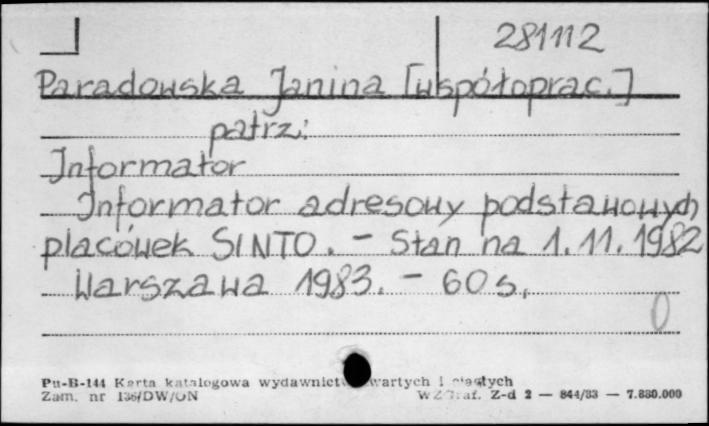 281112
Paradowska Janina [współoprac.]
patrz:
Informator
Informator adresowy podstawowych
placówek SINTO. - Stan na 1.11.1982
Warszawa 1983. - 60 s.
0
Pu-B-144 Karta katalogowa wydawnictw zwartych i ciągłych
Zam. nr 136/DW/ON WZGraf. Z-d 2 — 844/83 — 7.880.000